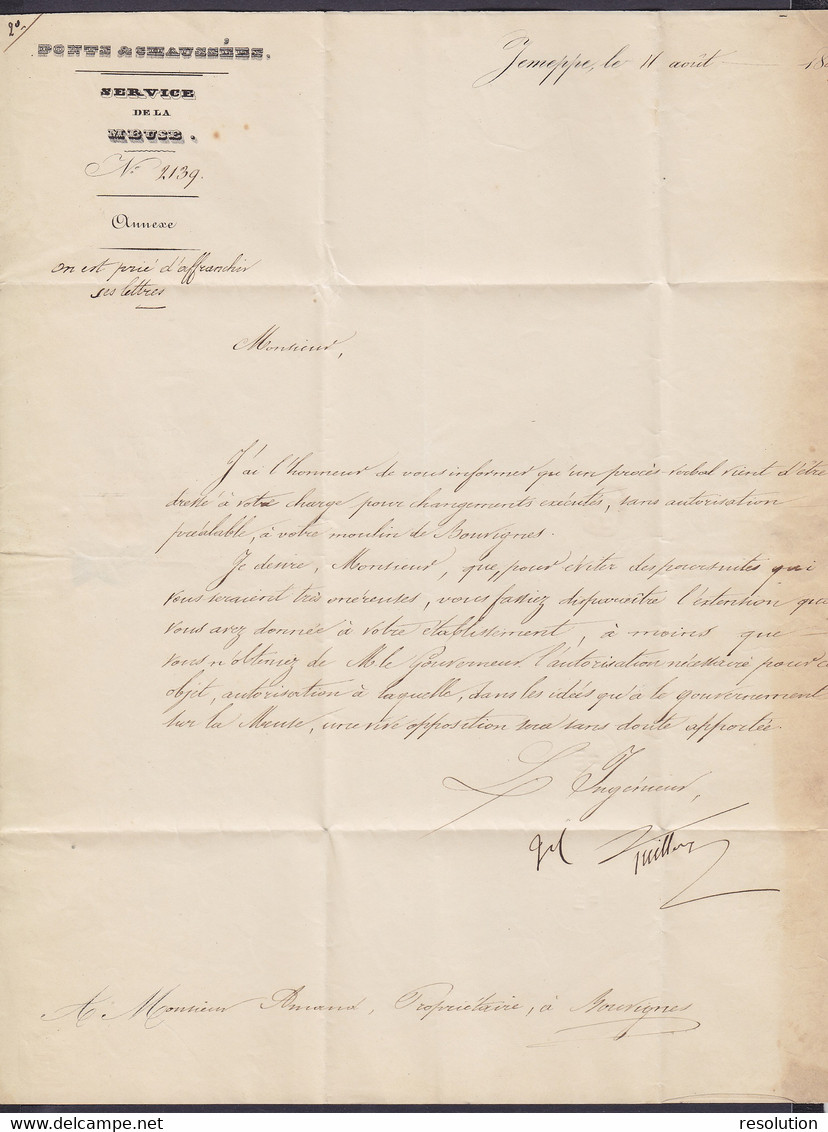 2°
PONTS & CHAUSSÉES.
Jemeppe, le 11 août 18
SERVICE
DE LA
MEUSE.
N° 2139.
Annexe
On est prié d'affranchir
ses lettres
Monsieur,
J'ai l'honneur de vous informer qu'un procès-verbal vient d'être
dressé à votre charge pour changements exécutés, sans autorisation
préalable, à votre moulin de Bouvignes.
Je désire, Monsieur, que, pour éviter des poursuites qui
vous seraient très onéreuses, vous fassiez disparaître l'extention que
vous avez donnée à votre établissement, à moins que
vous n'obteniez de Mr le Gouverneur l'autorisation nécessaire pour c
objet, autorisation à laquelle, dans les idées qu'à le gouvernement
sur la Meuse, une vive opposition sera sans doute apportée.
L'Ingénieur,
A Monsieur Amand, Propriétaire, à Bouvignes
delcampe.net
resolution